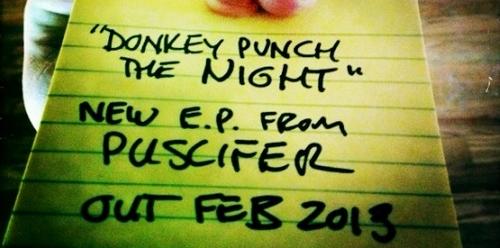 "DONKEY PUNCH
THE NIGHT"
NEW E.P. FROM
PUSCIFER
OUT FEB 2013